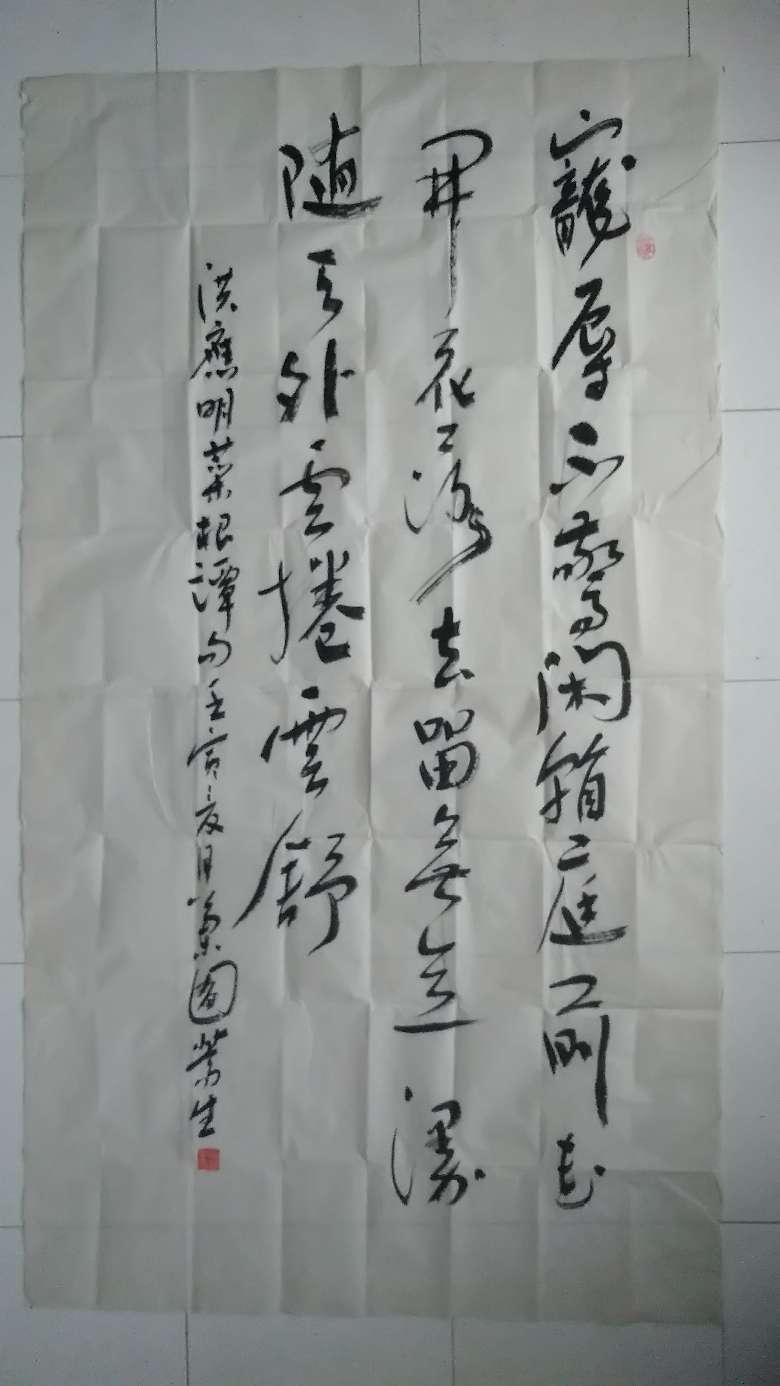 寵辱不驚閑看庭前花
開花落去留無意漫
随天外雲捲雲舒
洪應明菜根譚句壬寅夏月